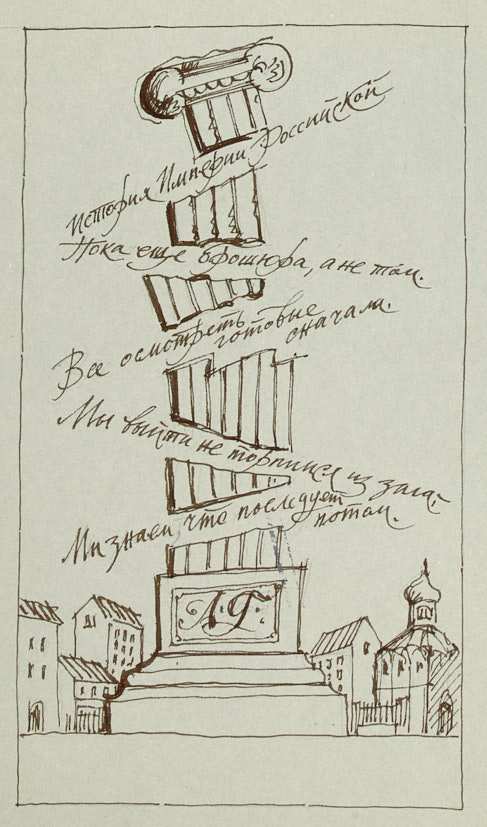 История Империи Российской
Пока ещё брошюра, а не том.
Все осмотреть готовые сначала.
Мы выйти не торпимся из зала.
Мы знаем, что последует потом.
А.Г.